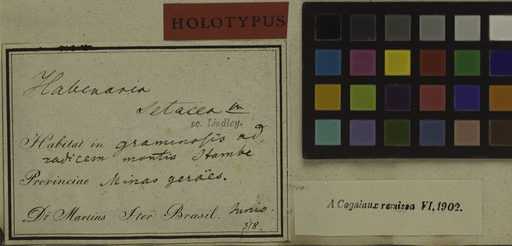 HOLOTYPUS
Habenaria
setacea m
sc. Lindley.
Habitat in graminosis ad
radicem montis Itambe
Provinciae Minas geräes.
Dr Martius Iter Brasil. Junio
818.
A Cogniaux remissa VI, 1902.